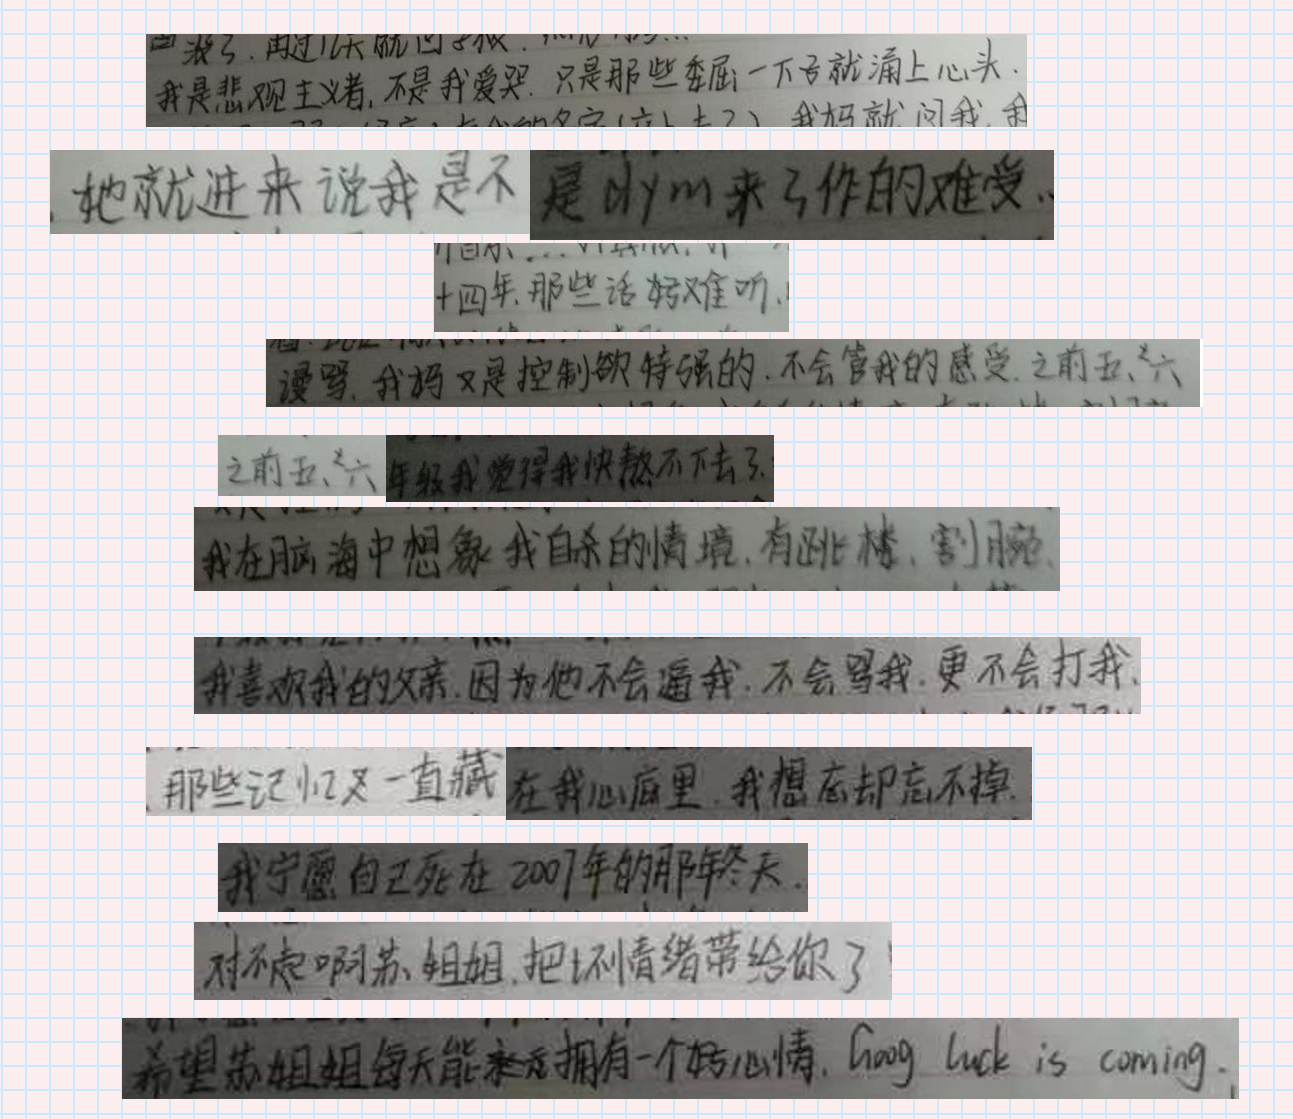 我是悲观主义者,不是我爱哭.只是那些委屈一下子就涌上心头.
她就进来说我是不是dym来了作的难受..
十四年.那些话好难听.
谩骂.我妈又是控制欲特强的.不会管我的感受.之前五、六
之前五、六年级我觉得我快熬不下去了.
我在脑海中想象我自杀的情境.有跳楼.割腕.
我喜欢我的父亲.因为他不会逼我.不会骂我.更不会打我.
那些记忆又一直藏在我心底里.我想忘却忘不掉.
我宁愿自己死在2007年的那年冬天.
对不起啊苏姐姐.把坏情绪带给你了
希望苏姐姐每天能拥有一个好心情. Goog luck is coming.